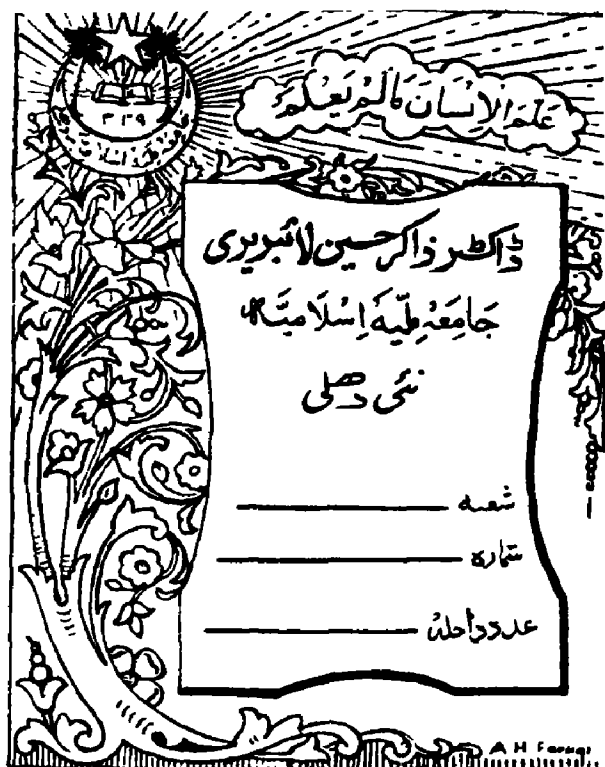 عَلَّمَ الْإِنْسَانَ مَا لَمْ يَعْلَمْ
ڈاکٹر ذاکر حسین لائبریری
جَامعَہ مِلّیہ اِسْلَامیَّہ
نئی دھلی
شعبہ
شمارہ
عدد داخلہ
A H Faruqi